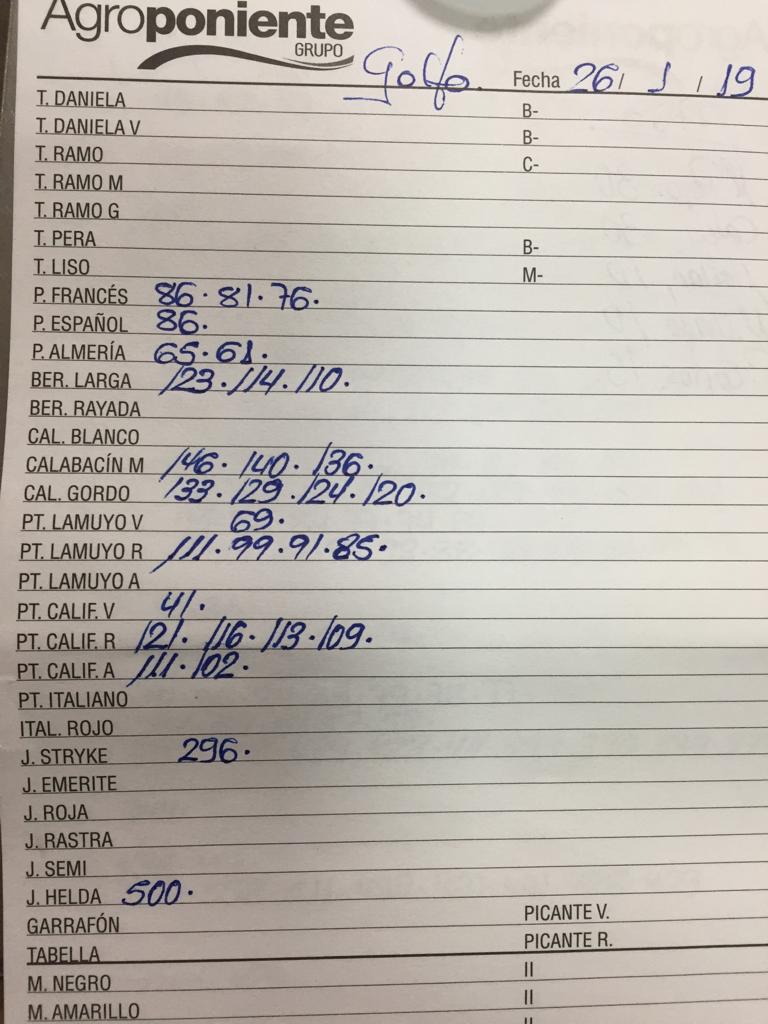 Agroponiente
GRUPO
Golfo. Fecha 26/ 1 / 19
T. DANIELA B-
T. DANIELA V B-
T. RAMO C-
T. RAMO M
T. RAMO G
T. PERA B-
T. LISO M-
P. FRANCÉS 86. 81. 76.
P. ESPAÑOL 86.
P. ALMERÍA 65. 61.
BER. LARGA 123. 114. 110.
BER. RAYADA
CAL. BLANCO
CALABACÍN M 146. 140. 136.
CAL. GORDO 133. 129. 124. 120.
PT. LAMUYO V 69.
PT. LAMUYO R 111. 99. 91. 85.
PT. LAMUYO A
PT. CALIF. V 41.
PT. CALIF. R 121. 116. 113. 109.
PT. CALIF. A 111. 102.
PT. ITALIANO
ITAL. ROJO
J. STRYKE 296.
J. EMERITE
J. ROJA
J. RASTRA
J. SEMI
J. HELDA 500.
GARRAFÓN PICANTE V.
TABELLA PICANTE R.
M. NEGRO II
M. AMARILLO II
II